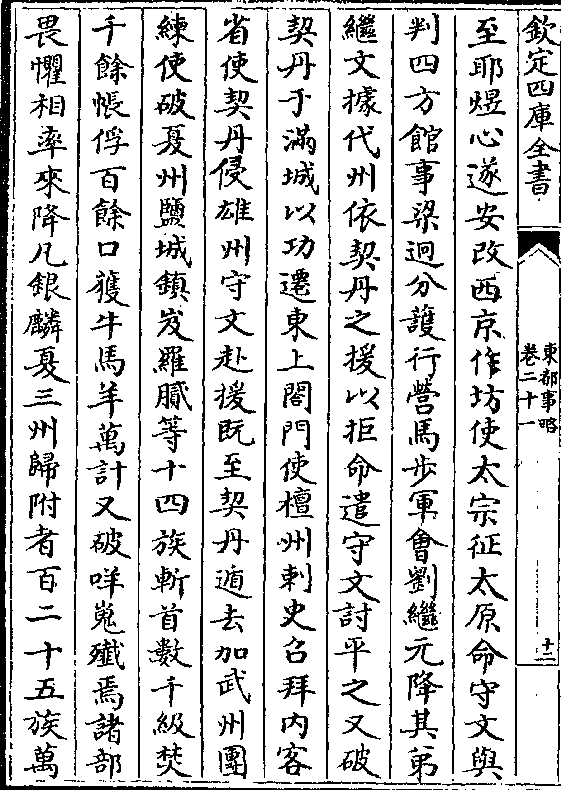 欽定四庫全書
東都事略
卷二十一
十二
至耶煜心遂安改西京作坊使太宗征太原命守文與
判四方館事梁迥分護行營馬步軍會劉繼元降其弟
繼文據代州依契丹之援以拒命遣守文討平之又破
契丹于滿城以功遷東上閤門使檀州刺史召拜内客
省使契丹侵雄州守文赴援既至契丹遁去加武州團
練使破夏州鹽城鎮岌羅膩等十四族斬首數千級焚
千餘帳俘百餘口獲牛馬羊萬計又破咩嵬殲焉諸部
畏懼相率來降凡銀麟夏三州歸附者百二十五族萬